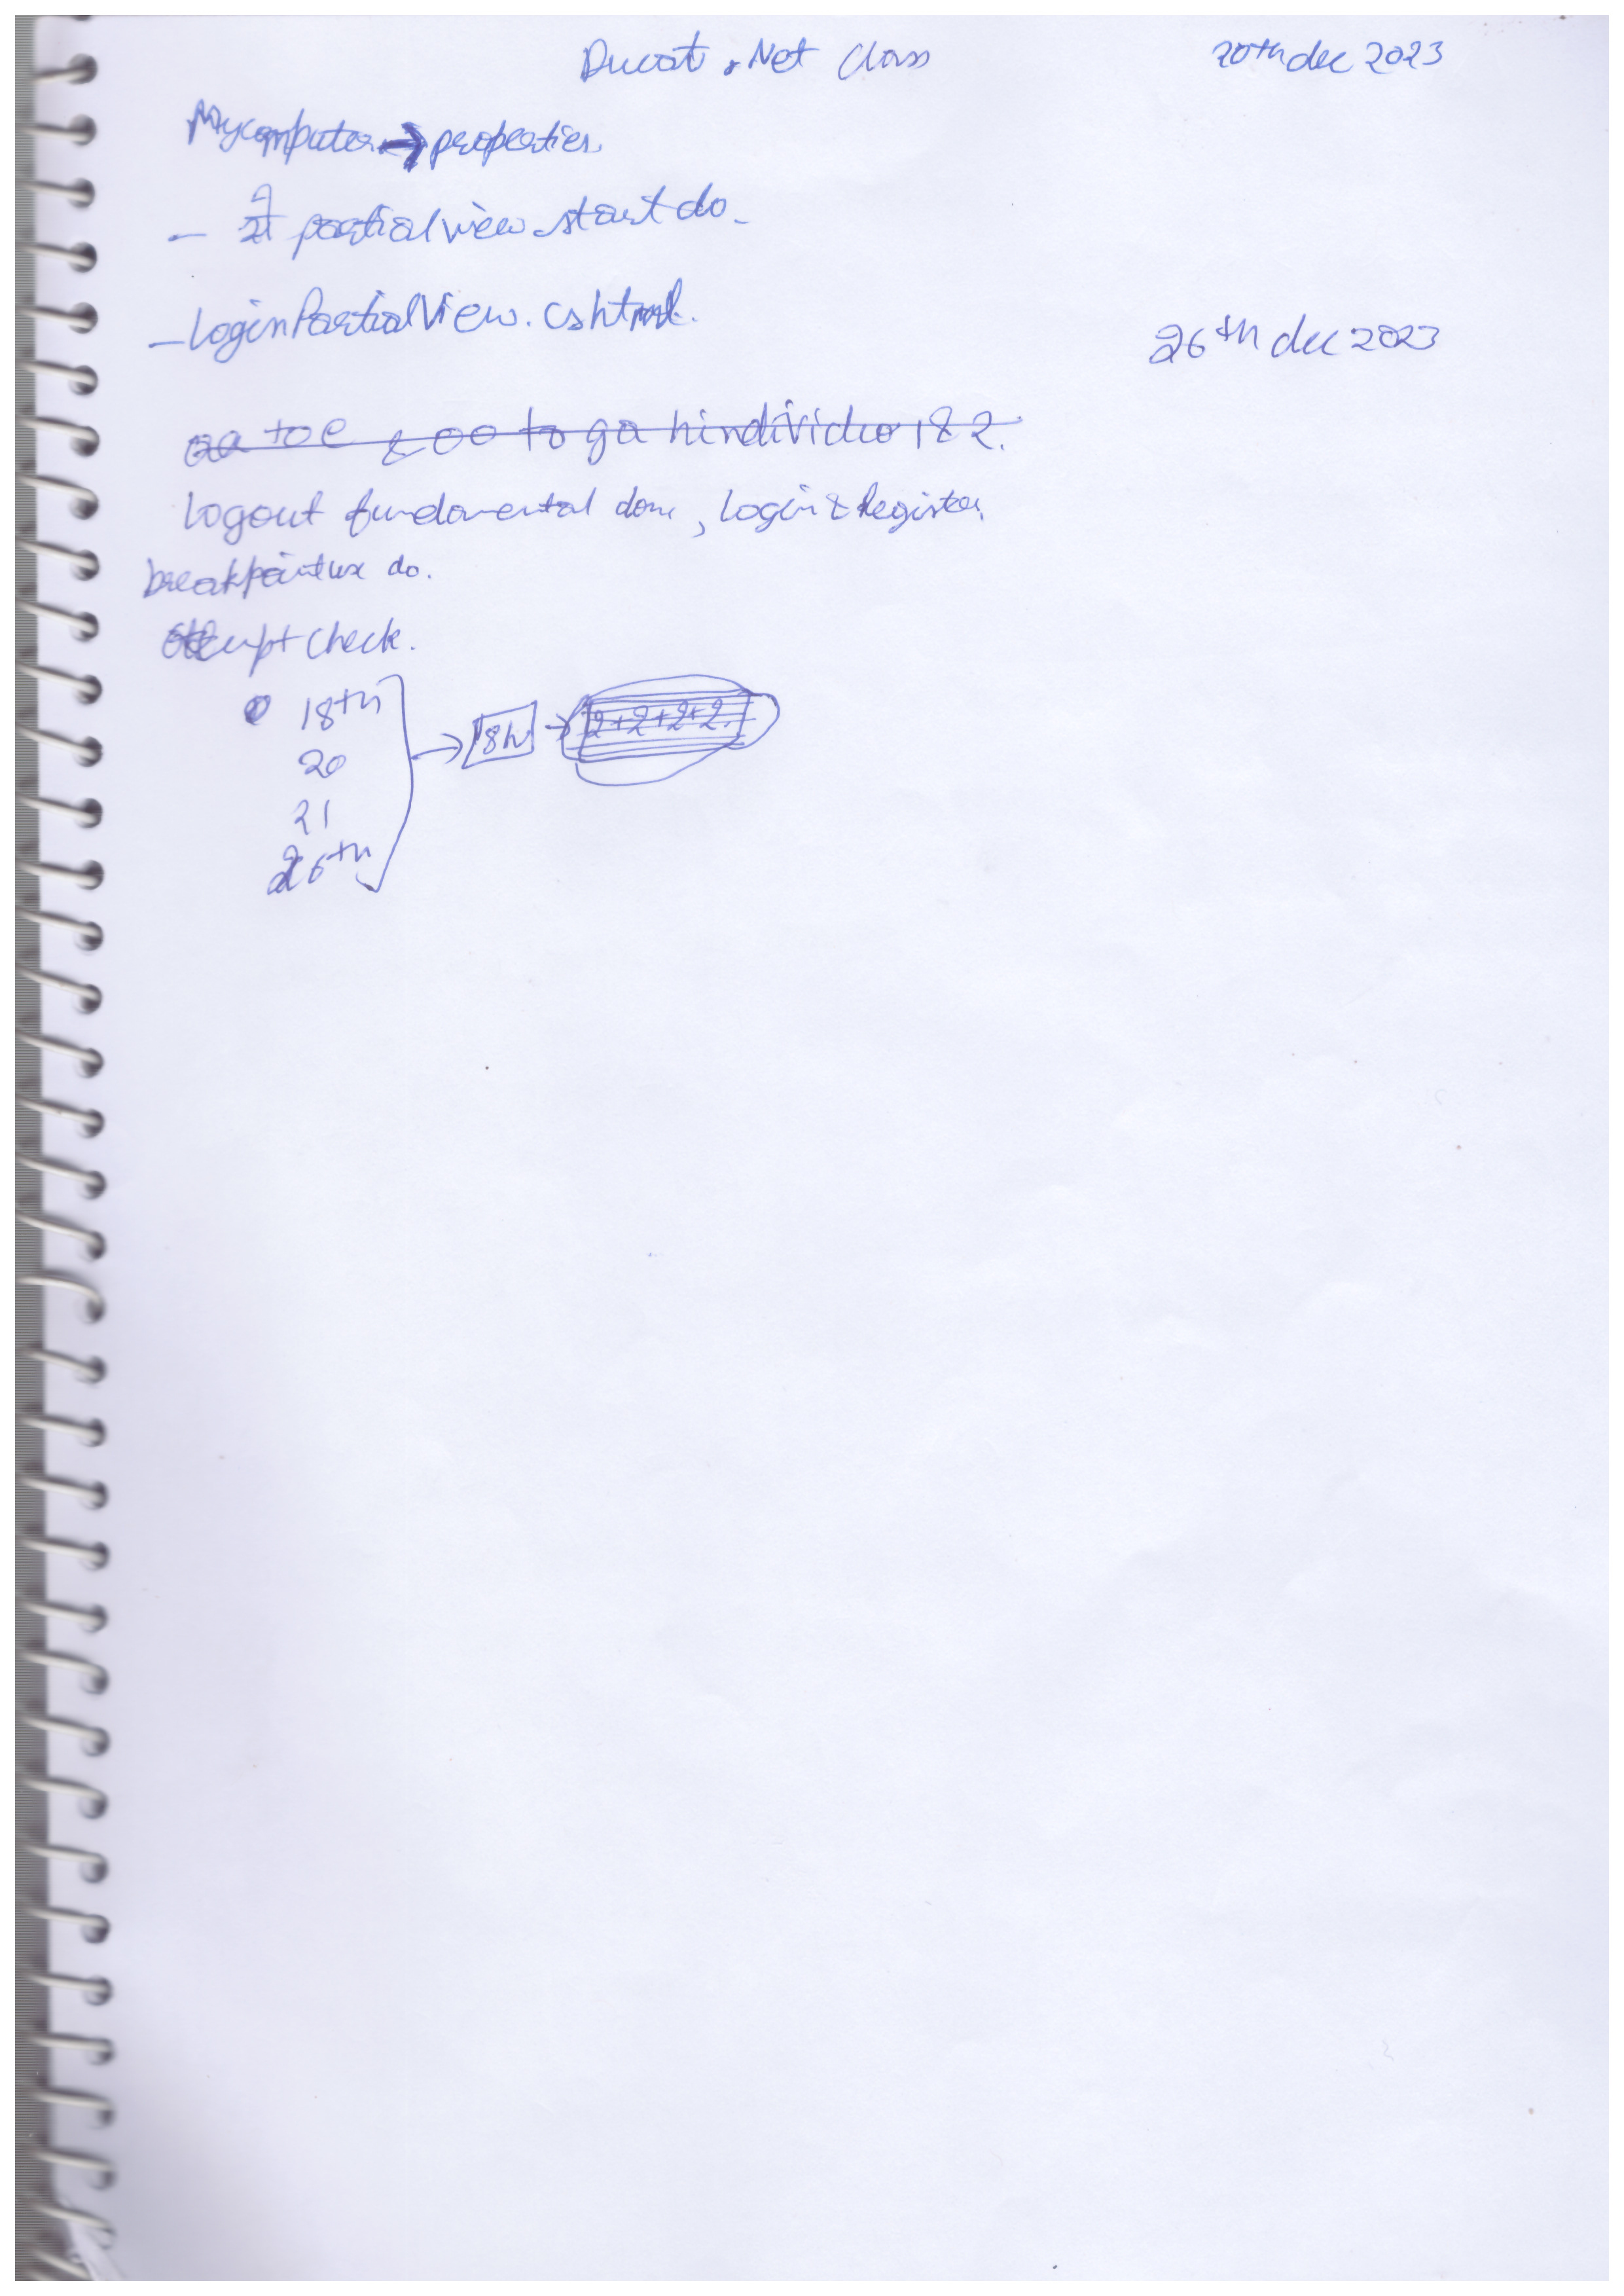 Ducat .Net Class 20th dec 2023
Mycomputer → properties.
- partial view start do.
- LoginPartialView.cshtml.
26th dec 2023
to ga hindi video 182.
Logout fundamental done, Login & Register
breakpoint use do.
check.
18th
20
21
26th
→ 8h → 2+2+2+2